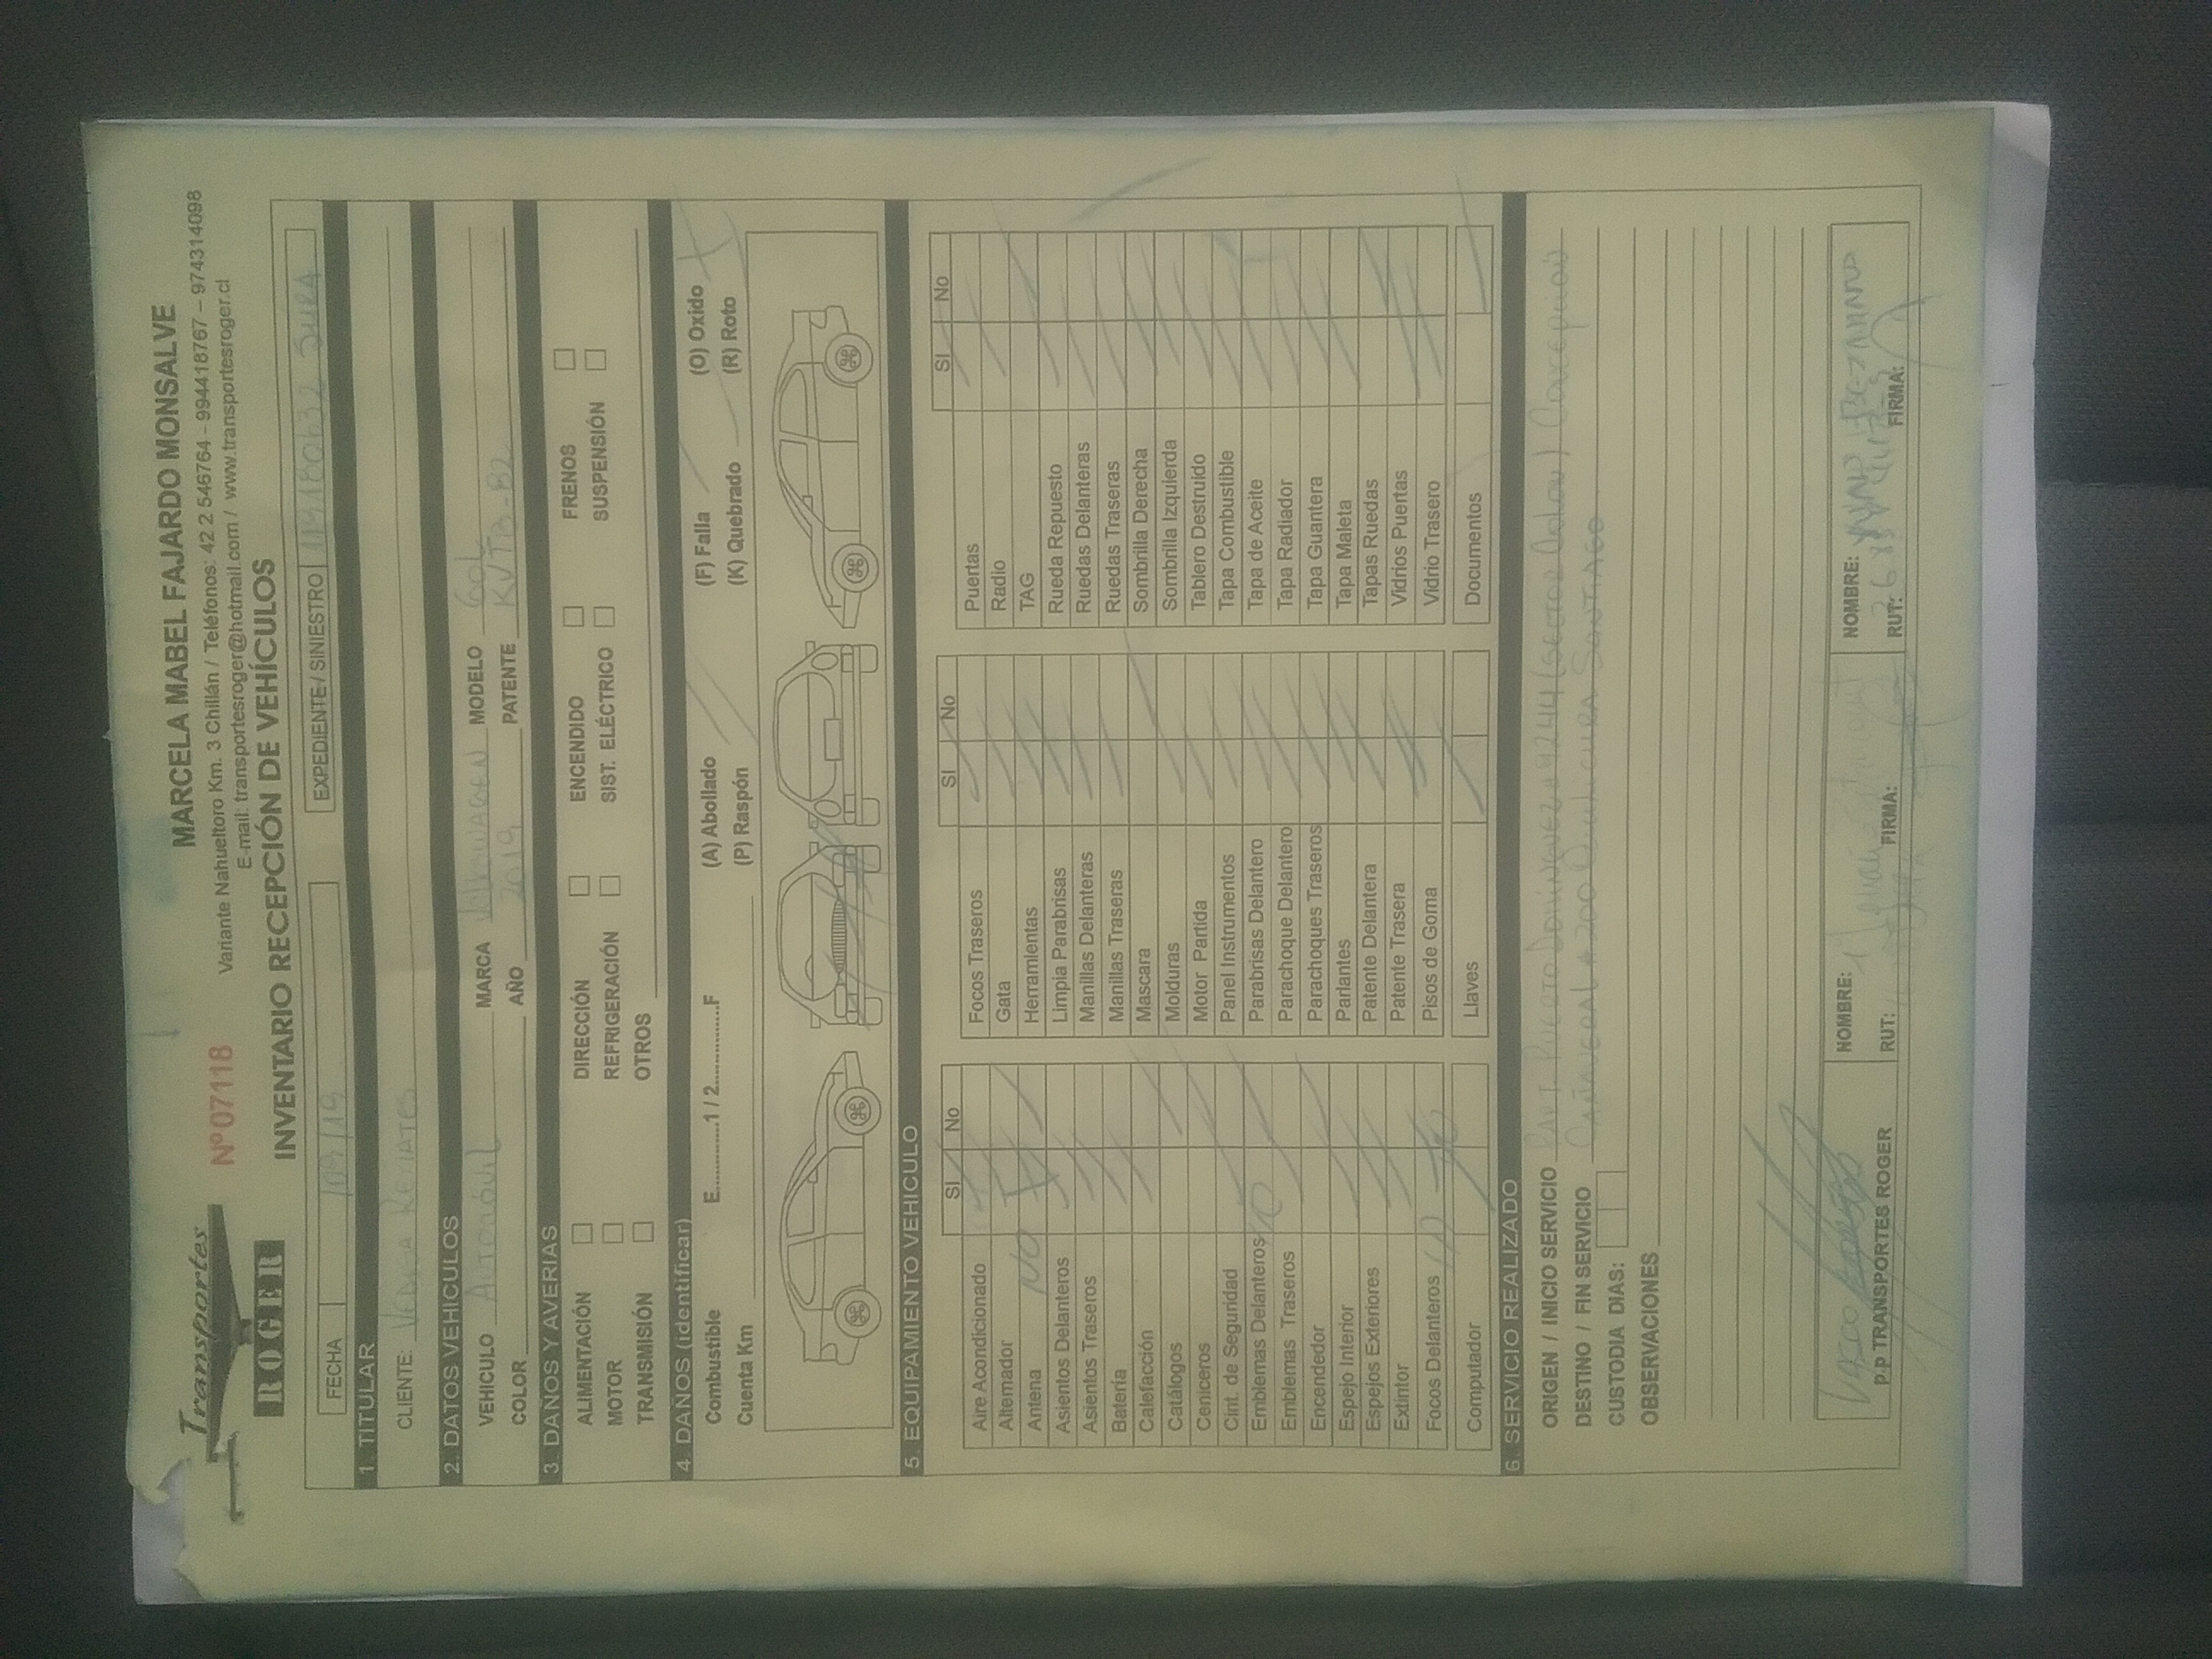 Transportes
ROGER
Nº 07118
MARCELA MABEL FAJARDO MONSALVE
Variante Nahueltoro Km. 3 Chillán / Teléfonos: 42 2 546764 - 994418767 – 974314098
E-mail: transportesroger@hotmail.com / www.transportesroger.cl
INVENTARIO RECEPCIÓN DE VEHÍCULOS
FECHA EXPEDIENTE/ SINIESTRO
1. TITULAR
CLIENTE: Vedisa Remates
2. DATOS VEHICULOS
VEHICULO Automóvil MARCA Volkswagen MODELO Gol
COLOR AÑO 2019 PATENTE
3. DAÑOS Y AVERIAS
ALIMENTACIÓN DIRECCIÓN ENCENDIDO FRENOS
MOTOR REFRIGERACIÓN SIST. ELÉCTRICO SUSPENSIÓN
TRANSMISIÓN OTROS
4. DAÑOS (identificar)
Combustible E............1 / 2............F (A) Abollado (F) Falla (O) Oxido
Cuenta Km (P) Raspón (K) Quebrado (R) Roto
5. EQUIPAMIENTO VEHICULO
SI No SI No SI No
Aire Acondicionado Focos Traseros Puertas
Alternador Gata Radio
Antena NO Herramientas TAG
Asientos Delanteros Limpia Parabrisas Rueda Repuesto
Asientos Traseros Manillas Delanteras Ruedas Delanteras
Batería Manillas Traseras Ruedas Traseras
Calefacción Mascara Sombrilla Derecha
Catálogos Molduras Sombrilla Izquierda
Ceniceros Motor Partida Tablero Destruido
Cint. de Seguridad Panel Instrumentos Tapa Combustible
Emblemas Delanteros Parabrisas Delantero Tapa de Aceite
Emblemas Traseros Parachoque Delantero Tapa Radiador
Encendedor Parachoques Traseros Tapa Guantera
Espejo Interior Parlantes Tapa Maleta
Espejos Exteriores Patente Delantera Tapas Ruedas
Extintor Patente Trasera Vidrios Puertas
Focos Delanteros Pisos de Goma Vidrio Trasero
Computador Llaves Documentos
6. SERVICIO REALIZADO
ORIGEN / INICIO SERVICIO
DESTINO / FIN SERVICIO Santiago
CUSTODIA DIAS:
OBSERVACIONES
P.P TRANSPORTES ROGER
NOMBRE:
RUT: FIRMA:
NOMBRE:
RUT: FIRMA: